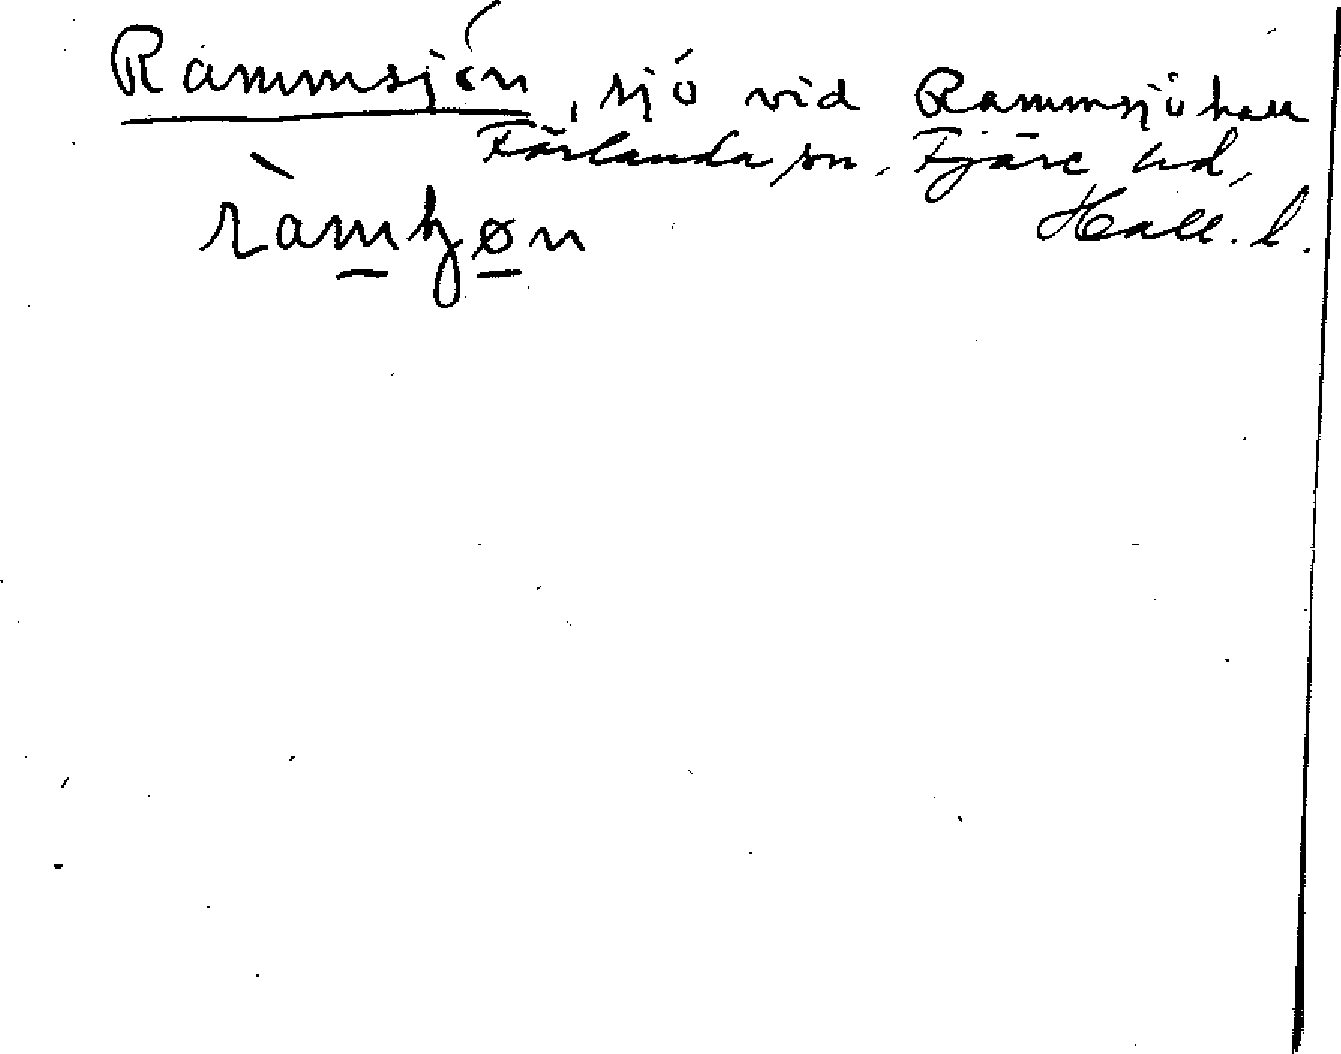 Rammsjön, sjö vid Rammsjöhall
Förlanda sn, Fjäre hd,
Hall. l.
ràmʂøn